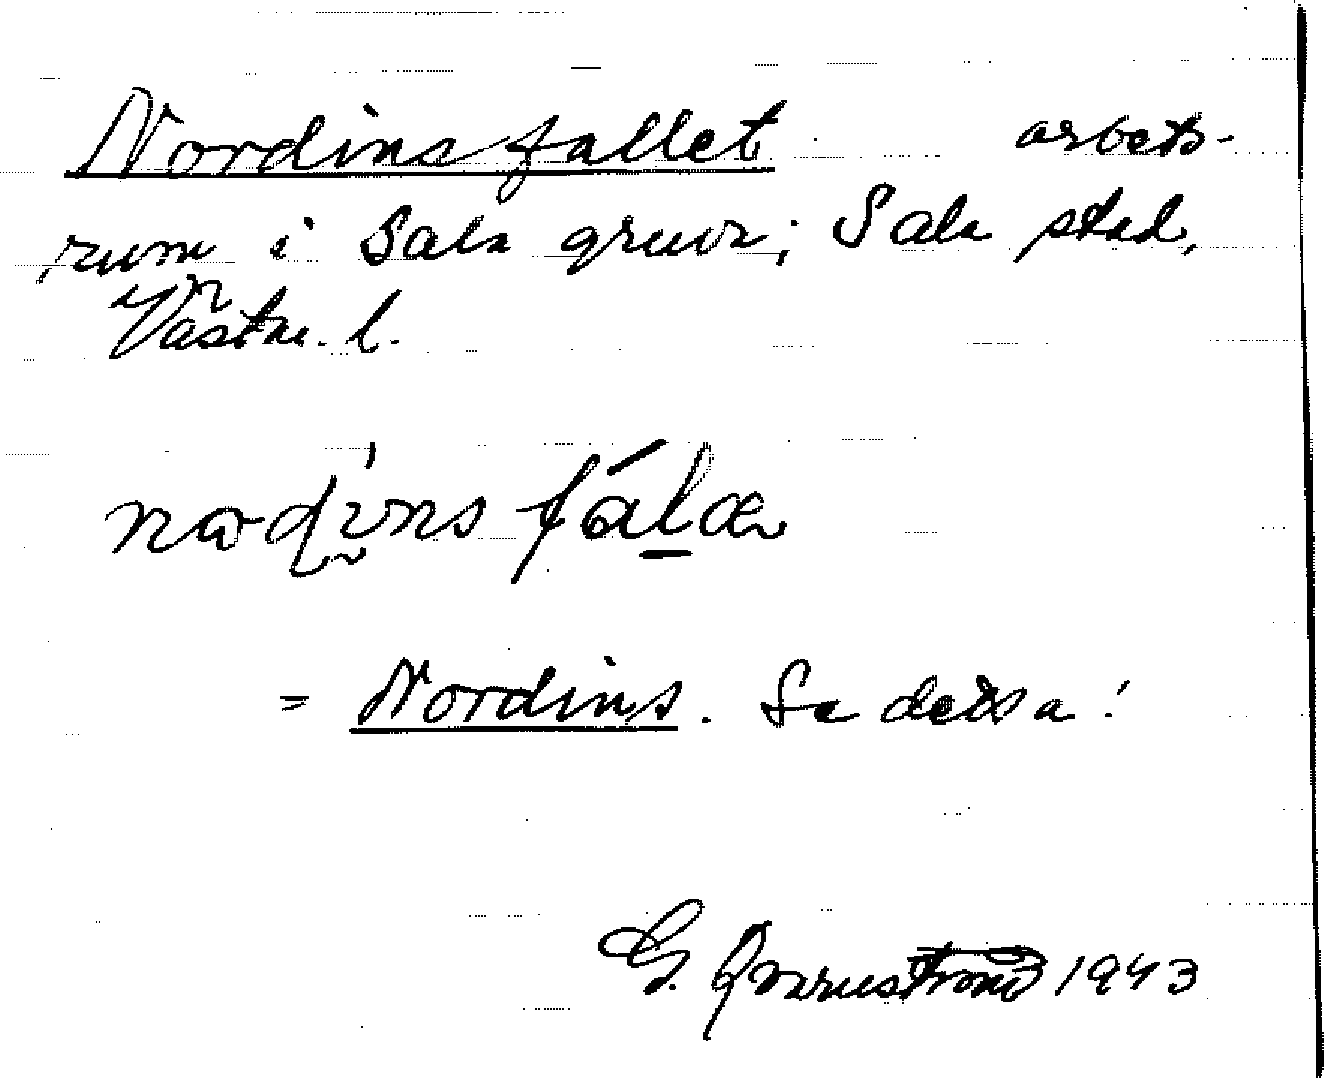 Nordinsfallet arbets-
rum i Sala gruva; Sala stad,
Västm. l.
= Nordins. Se detta!
G. Qvarnström 1943